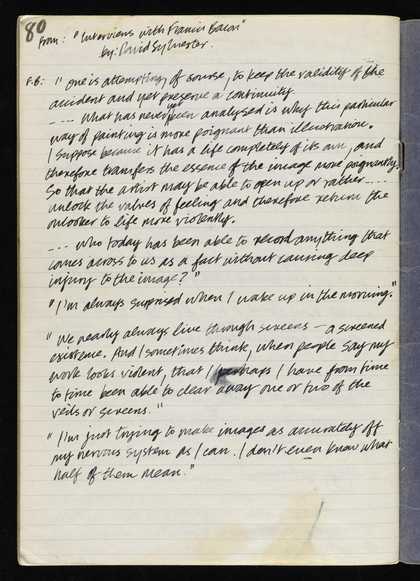 80
From: "Interviews with Francis Bacon"
by: David Sylvester.
F.B: "One is attempting, of course, to keep the validity of the
accident and yet preserve a continuity.
.... What has never yet been analysed is why this particular
way of painting is more poignant than illustration.
I suppose because it has a life completely of its own, and
therefore transfers the essence of the image more poignantly.
So that the artist may be able to open up or rather ....
unlock the valves of feeling and therefore return the
onlooker to life more violently.
... Who today has been able to record anything that
comes across to us as a fact without causing deep
injury to the image?"
"I'm always suprised when I wake up in the morning."
"We nearly always live through screens – a screened
existence. And I sometimes think, when people say my
work looks violent, that I perhaps I have from time
to time been able to clear away one or two of the
veils or screens."
"I'm just trying to make images as accurately off
my nervous system as I can. I don't even know what
half of them mean."